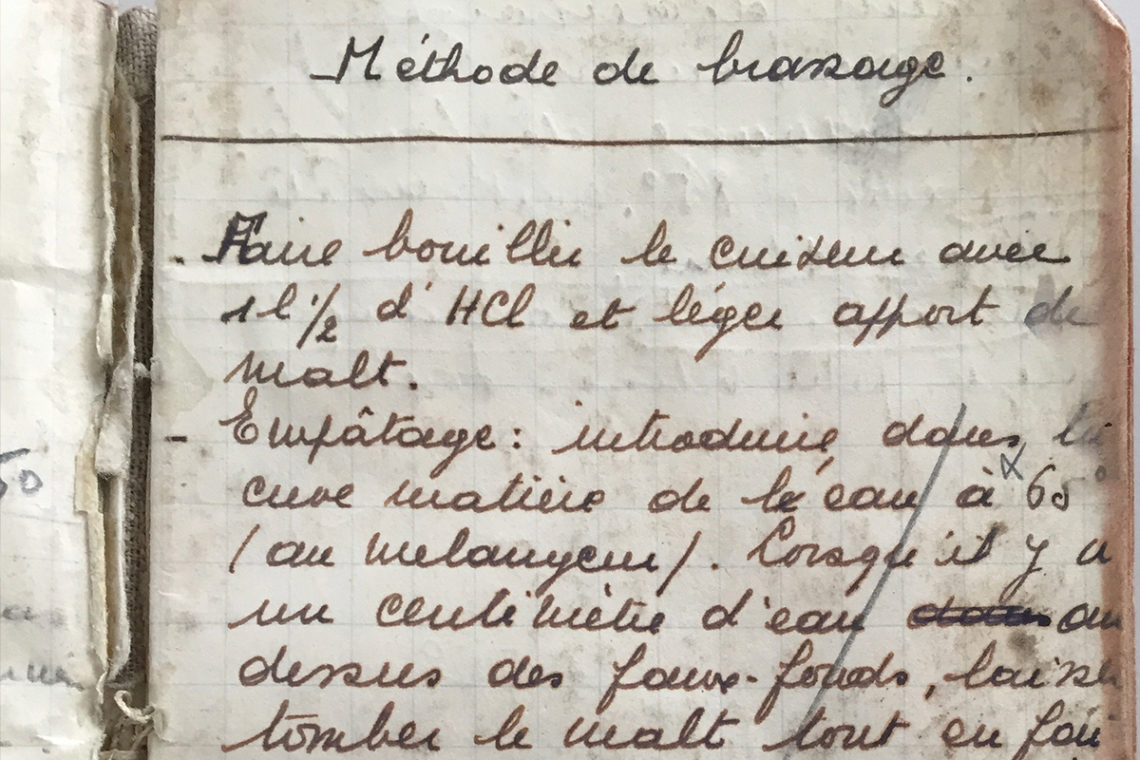 Méthode de brassage.
. Faire bouillir le cuiseur avec
1 l 1/2 d'HCl et léger apport de
malt.
- Empâtage: introduire, dans la
cuve matière de l'eau à 65°
(au mélangeur). Lorsqu'il y a
un centimètre d'eau au
dessus des faux-fonds, laisser
tomber le malt tout en fai
50